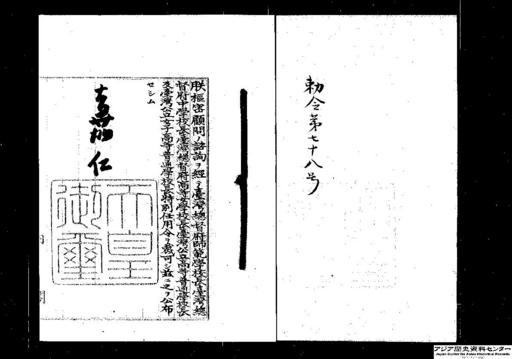 勅令第七十八号
朕樞密顧問ノ諮詢ヲ經テ臺灣總督府師範學校長臺灣總
督府中學校長臺灣總督府高等女學校長臺灣公立高等普通學校長
及臺灣公立女子高等普通學校長特別任用令ヲ裁可シ茲ニ之ヲ公布
セシム
嘉仁
天皇
御璽
アジア歴史資料センター
Japan Center for Asian Historical Records